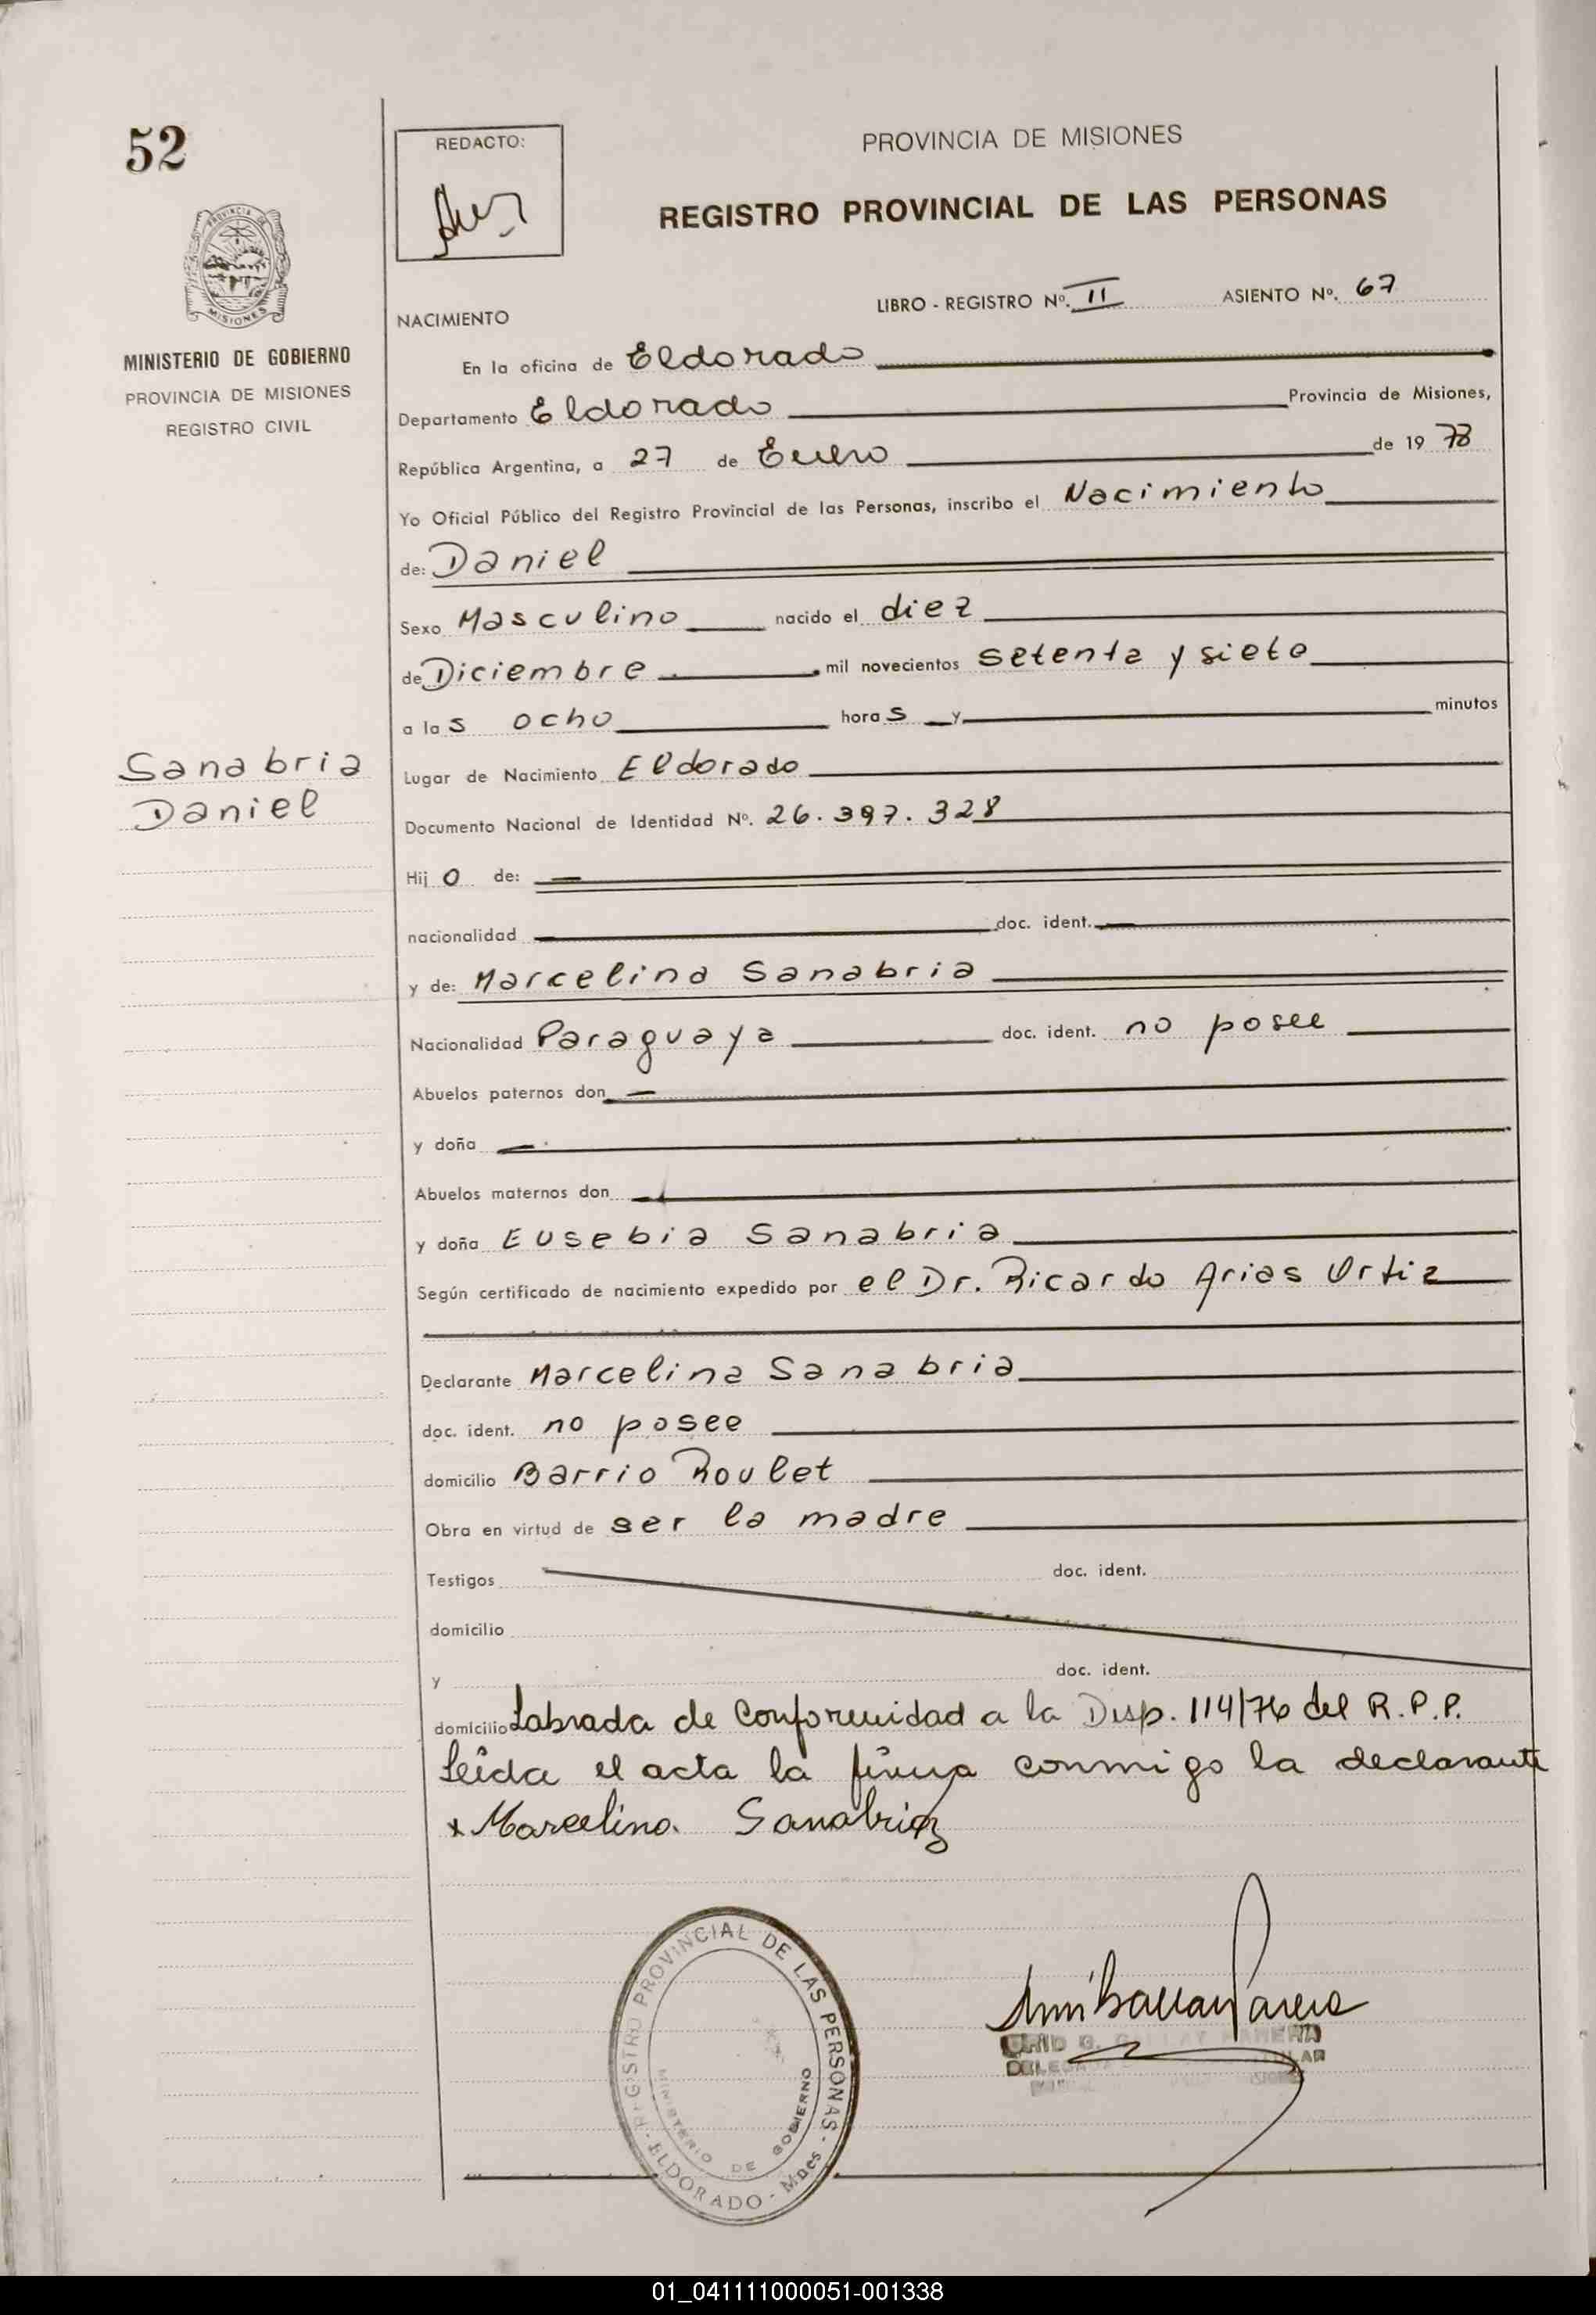 52
REDACTO:
PROVINCIA DE MISIONES
REGISTRO PROVINCIAL DE LAS PERSONAS
PROVINCIA DE
MISIONES
MINISTERIO DE GOBIERNO
PROVINCIA DE MISIONES
REGISTRO CIVIL
NACIMIENTO
LIBRO - REGISTRO Nº. II ASIENTO Nº. 67
En la oficina de Eldorado
Departamento Eldorado Provincia de Misiones,
República Argentina, a 27 de Enero de 19 78
Yo Oficial Público del Registro Provincial de las Personas, inscribo el Nacimiento
de: Daniel
Sexo Masculino nacido el diez
de Diciembre mil novecientos setenta y siete
a las ocho horas y minutos
Sanabria
Daniel
Lugar de Nacimiento Eldorado
Documento Nacional de Identidad Nº. 26.397.328
Hijo de:
nacionalidad doc. ident.
y de: Marcelina Sanabria
Nacionalidad Paraguaya doc. ident. no posee
Abuelos paternos don
y doña
Abuelos maternos don
y doña Eusebia Sanabria
Según certificado de nacimiento expedido por el Dr. Ricardo Arias Ortiz
Declarante Marcelina Sanabria
doc. ident. no posee
domicilio Barrio Roulet
Obra en virtud de ser la madre
Testigos doc. ident.
domicilio
y doc. ident.
domicilio Labrada de Conformidad a la Disp. 114/76 del R.P.P.
Leída el acta la firma conmigo la declarante
x Marcelina Sanabria
REGISTRO PROVINCIAL DE LAS PERSONAS - ELDORADO - Mnes
MINISTERIO DE GOBIERNO
01_041111000051-001338